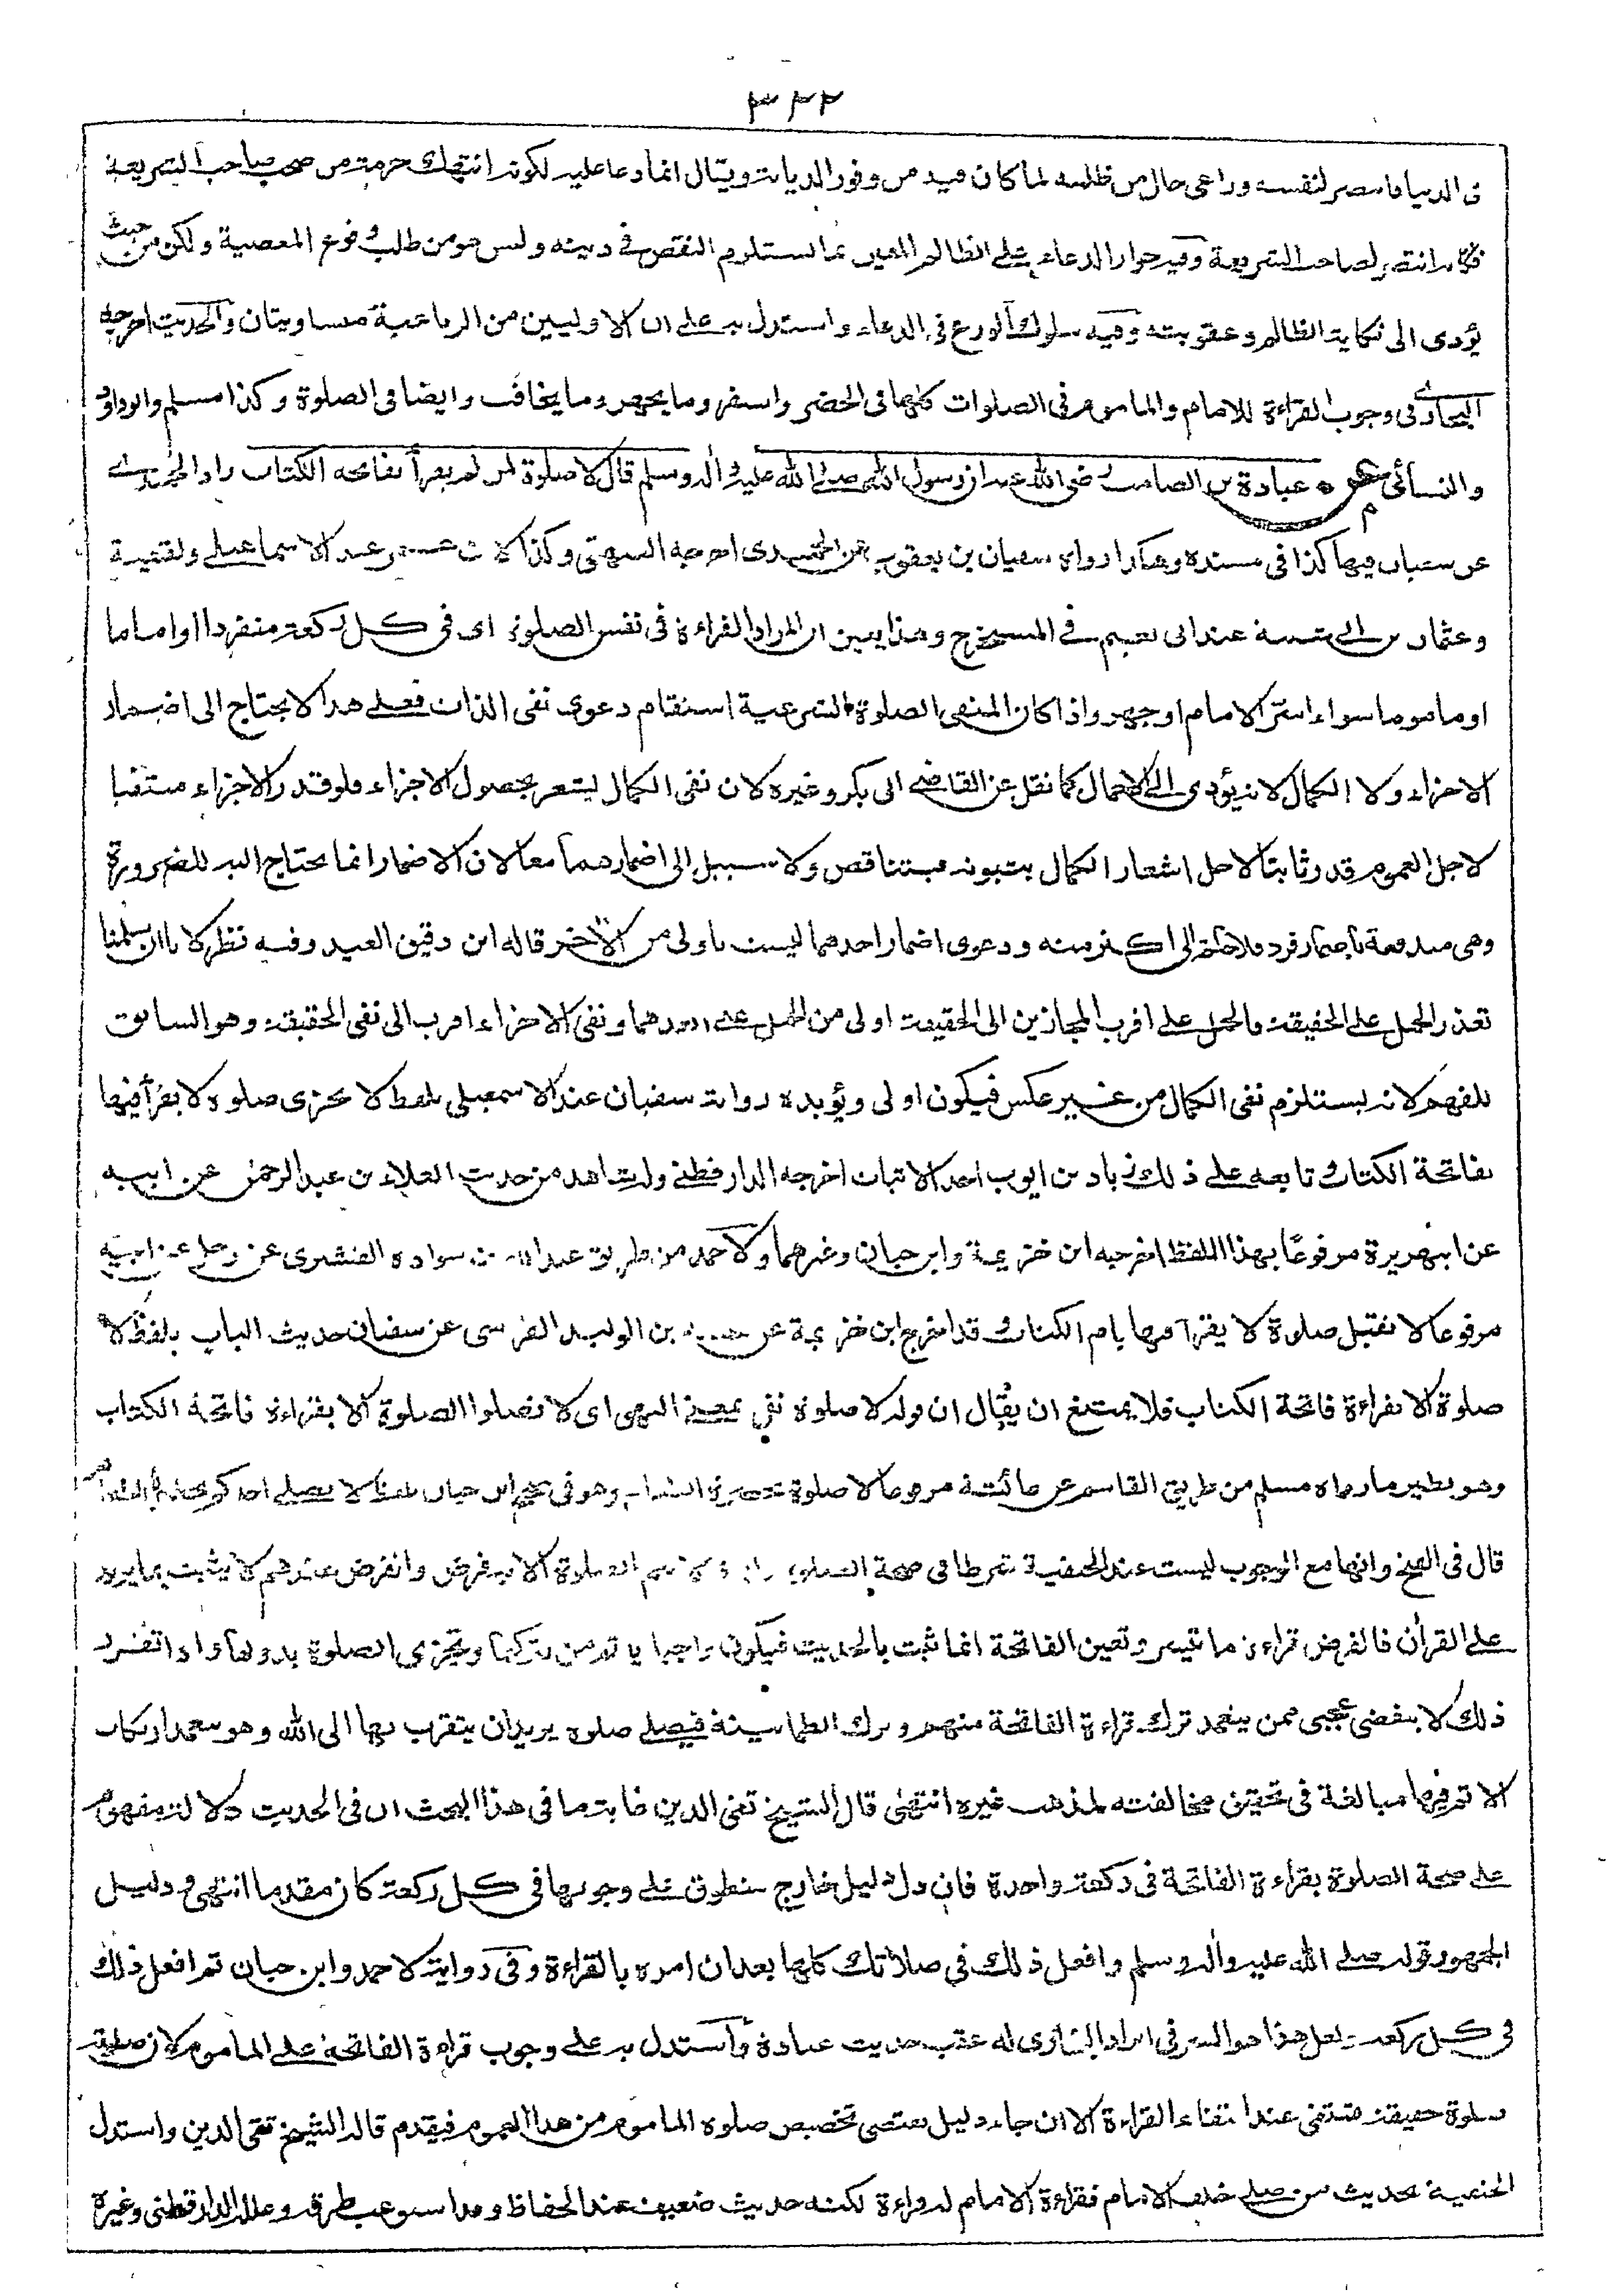 ٣٤٢
فى الدنيا فانتصر لنفسه وراعى حال من ظلمه لما كان فيه من وفور الديانة ويقال انما دعا عليه لكونه انتهك حرمة من صحب صاحب الشريعة
فكانه انتصر لصاحب الشريعة وفيه جواز الدعاء على الظالم المعين بما يستلزم النقص فى دينه وليس هو من طلب وقوع المعصية ولكن من حيث
يؤدى الى نكاية الظالم وعقوبته وفيه سلوك الورع فى الدعاء واستدل به على ان الاوليين من الرباعية متساويتان والحديث اخرجه
البخارى فى وجوب القراءة للامام والماموم فى الصلوات كلها فى الحضر والسفر وما يجهر وما يخافت وايضا فى الصلوة وكذا مسلم وابوداود
والنسائى عن عبادة بن الصامت رضى الله عنه ان رسول الله صلى الله عليه وآله وسلم قال لا صلوة لمن لم يقرأ بفاتحة الكتاب زاد الحميدى
عن سفيان فيها كذا فى مسنده وهكذا رواه سفيان بن يعقوب عن الحميدى اخرجه البيهقى وكذا لابن عمر عند الاسماعيلى ولقتيبة
وعثمان بن ابى شيبة عند ابى نعيم فى المستخرج وهذا يعين ان المراد القراءة فى نفس الصلوة اى فى كل ركعة منفردا او اماما
او ماموما سواء اسر الامام او جهر واذا كان المنفى الصلوة الشرعية استقام دعوى نفى الذات فعلى هذا لا يحتاج الى اضمار
الاجزاء ولا الكمال لانه يؤدى الى الاجمال كما نقل عن القاضى ابى بكر وغيره لان نفى الكمال يشعر بحصول الاجزاء فلو قدر الاجزاء منتفيا
لاجل العموم قدر ثابتا لاجل اشعار الكمال بثبوته فيتناقض ولا سبيل الى اضمارهما معا لان الاضمار انما يحتاج اليه للضرورة
وهى مندفعة باضمار فرد فلا حاجة الى اكثر منه ودعوى اضمار احدهما ليست باولى من الآخر قاله ابن دقيق العيد وفيه نظر لانا ان سلمنا
تعذر الحمل على الحقيقة فالحمل على اقرب المجازين الى الحقيقة اولى من الحمل على ابعدهما ونفى الاجزاء اقرب الى نفى الحقيقة وهو السابق
للفهم لانه يستلزم نفى الكمال من غير عكس فيكون اولى ويؤيده رواية سفيان عند الاسمعيلى بلفظ لا تجزى صلوة لا يقرأ فيها
بفاتحة الكتاب تابعه على ذلك زياد بن ايوب احد الاثبات اخرجه الدارقطنى وله شاهد من حديث العلاء بن عبد الرحمن عن ابيه
عن ابى هريرة مرفوعا بهذا اللفظ اخرجه ابن خزيمة وابن حبان وغيرهما ولاحمد من طريق عبد الله بن سوادة القشيرى عن رجل عن ابيه
مرفوعا لا تقبل صلوة لا يقرأ فيها بام الكتاب وقد اخرج ابن خزيمة عن محمد بن الوليد القرشى عن سفيان حديث الباب بلفظ لا
صلوة الا بقراءة فاتحة الكتاب فلا يمتنع ان يقال ان قوله لا صلوة نفى بمعنى النهى اى لا تصلوا الصلوة الا بقراءة فاتحة الكتاب
وهو نظير ما رواه مسلم من طريق القاسم عن عائشة مرفوعا لا صلوة بحضرة الطعام وهو فى صحيح ابن حبان بلفظ لا يصلى احدكم بحضرة الطعام
قال فى الفتح وانها مع الوجوب ليست عند الحنفية شرطا فى صحة الصلوة الصلوة الا به فرض والفرض عندهم لا يثبت بما يزيد
على القرآن فالفرض قراءة ما تيسر وتعين الفاتحة انما ثبت بالحديث فيكون واجبا ياثم من يتركها وتجزى الصلوة بدونها واذا تقرر
ذلك لا ينقضى عجبى ممن يتعمد ترك قراءة الفاتحة منهم وترك الطمانينة فيصلى صلوة يريد ان يتقرب بها الى الله وهو يتعمد ارتكاب
الاثم فيها مبالغة فى تحقيق مخالفته لمذهب غيره انتهى قال الشيخ تقى الدين غاية ما فى هذا البحث ان فى الحديث دلالة مفهوم
على صحة الصلوة بقراءة الفاتحة فى ركعة واحدة فان دل دليل خارج منطوق على وجوبها فى كل ركعة كان مقدما انتهى ودليل
الجمهور قوله صلى الله عليه وآله وسلم وافعل ذلك فى صلاتك كلها بعد ان امره بالقراءة وفى رواية لاحمد وابن حبان ثم افعل ذلك
فى كل ركعة ولعل هذا هو السر فى ايراد البخارى له عقب حديث عبادة واستدل به على وجوب قراءة الفاتحة على الماموم لان صلوته
صلوة حقيقة فتنتفى عند انتفاء القراءة الا ان جاء دليل يقتضى تخصيص صلوة الماموم من هذا العموم فيقدم قاله الشيخ تقى الدين واستدل
الحنفية بحديث من صلى خلف الامام فقراءة الامام له قراءة لكنه حديث ضعيف عند الحفاظ وقد استوعب طرقه وعلله الدارقطنى وغيره